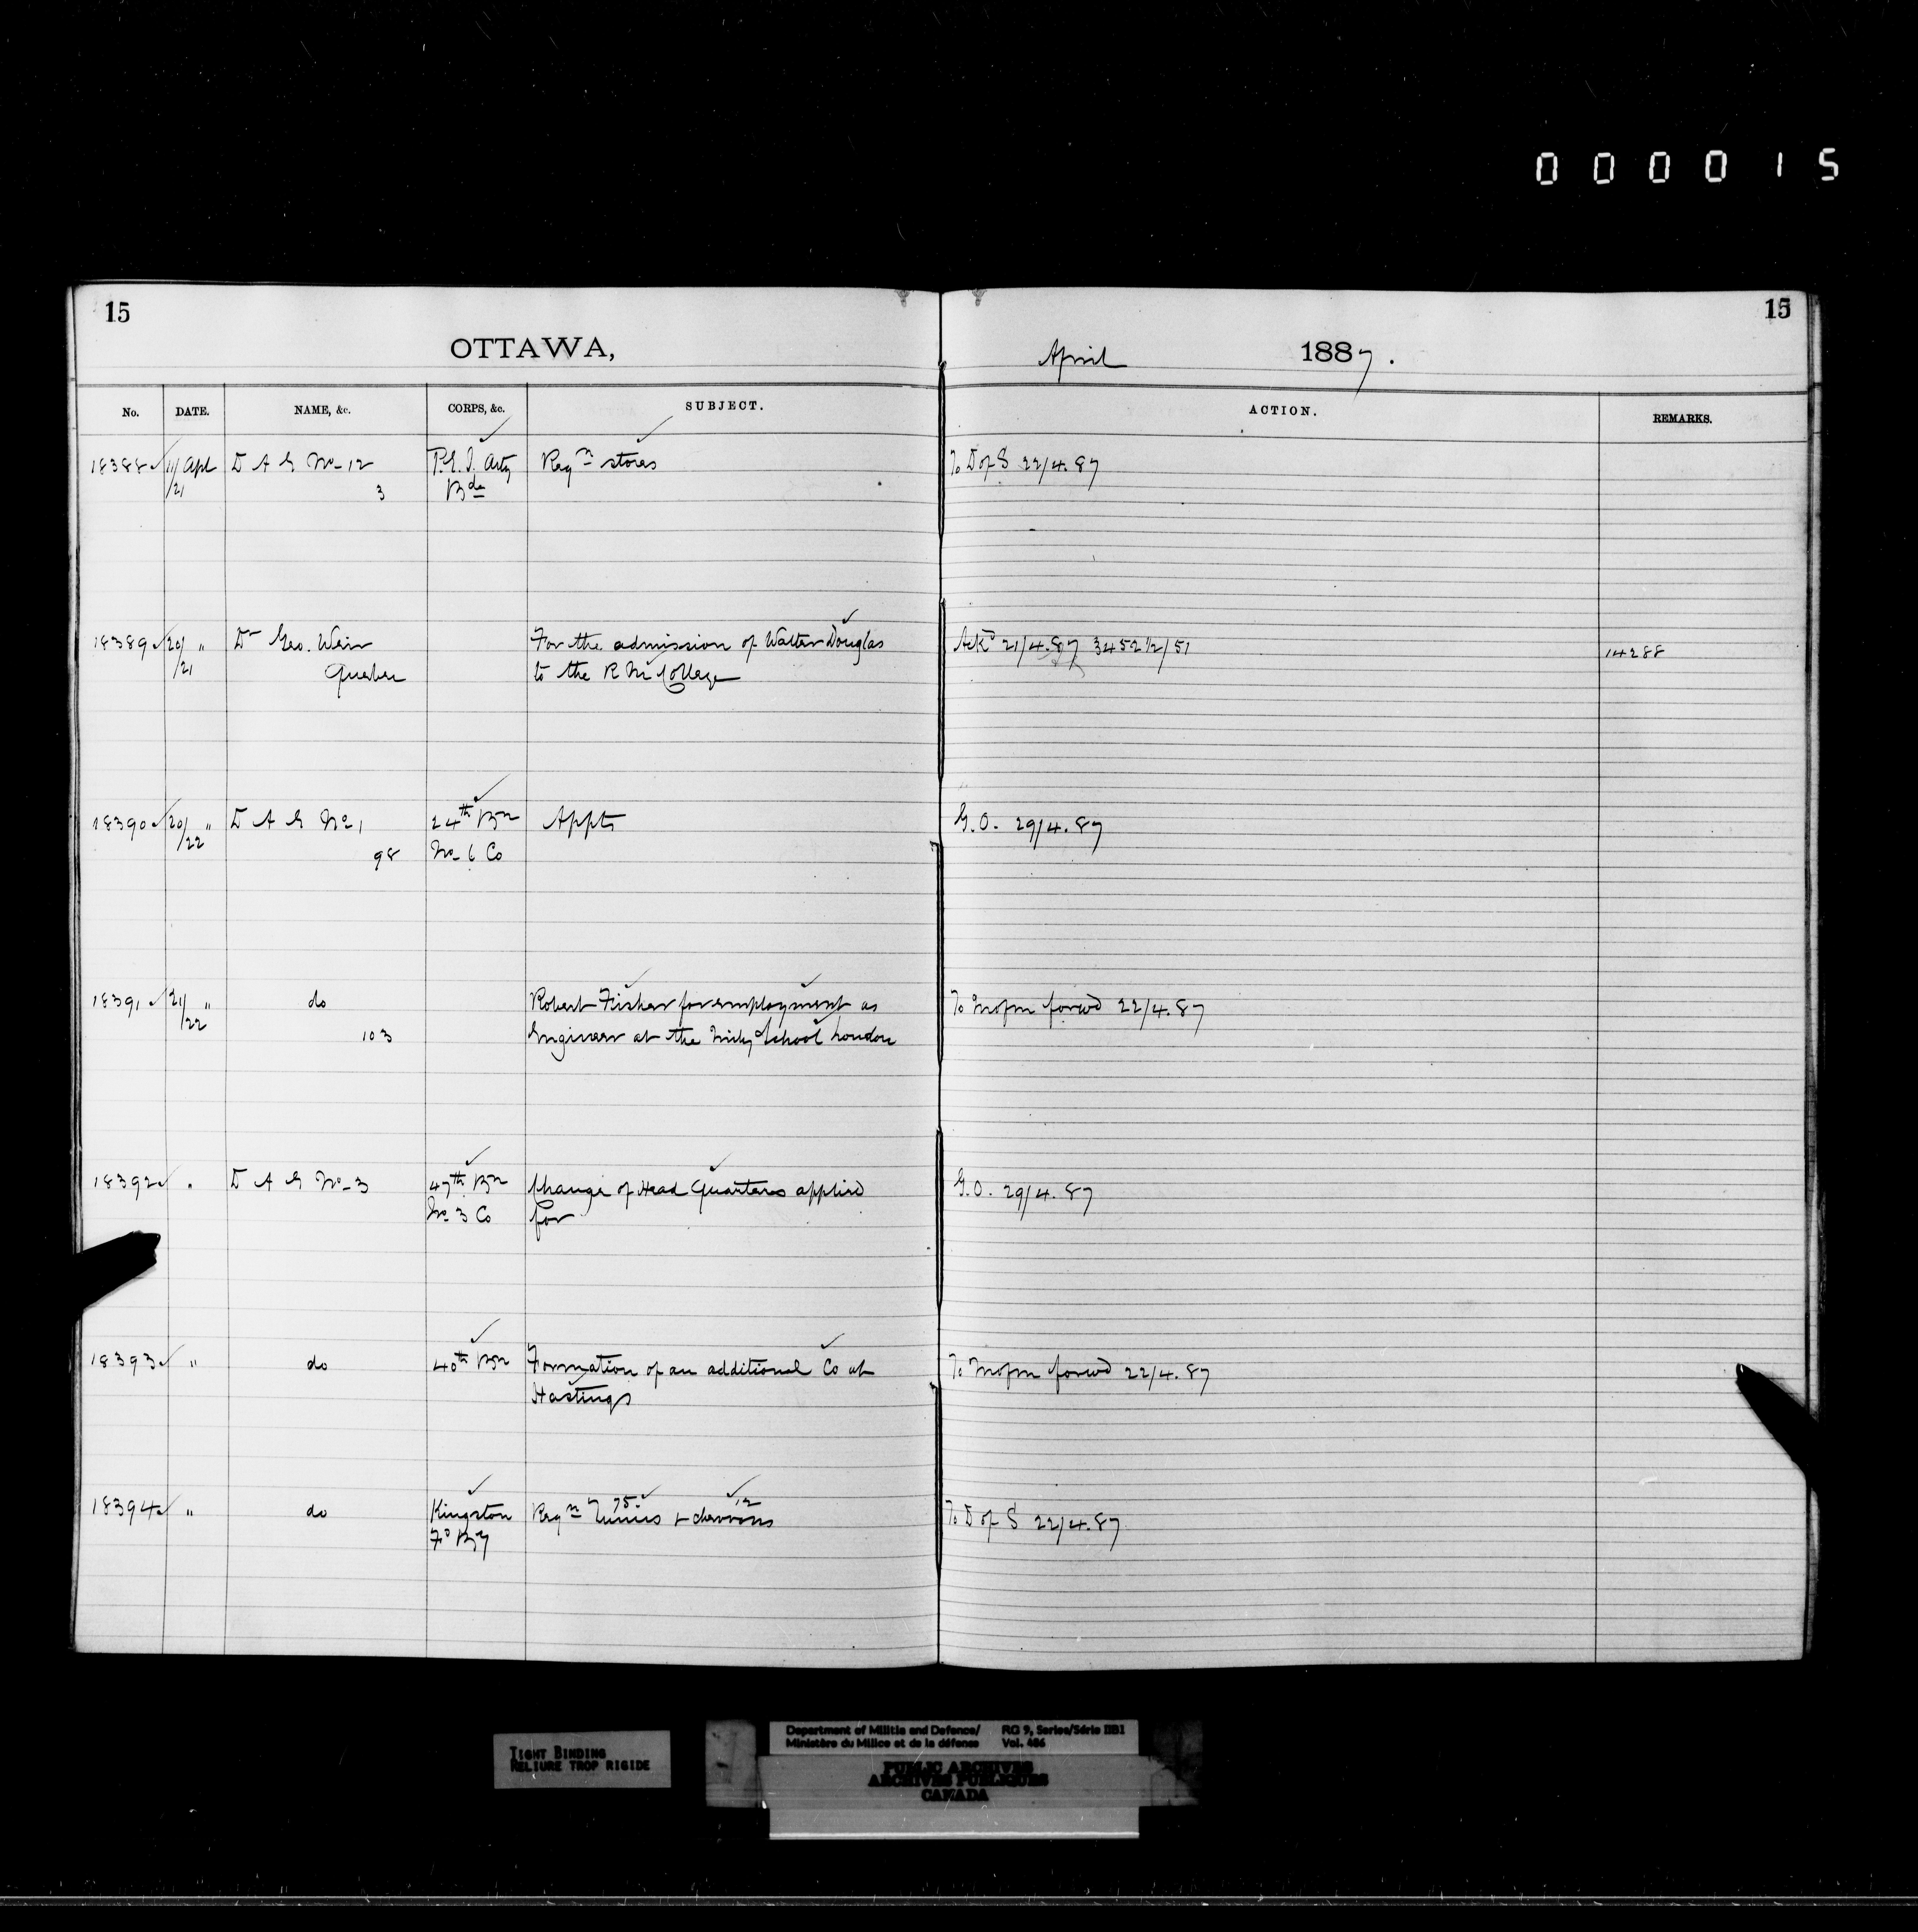 000015
15
15
OTTAWA,
April 1887.
No. DATE. NAME, &c. CORPS, &c. SUBJECT. ACTION. REMARKS.
18388 11/21 Apl D A G No 12 P.E.I. Arty Reqn stores To D of S 22/4.87
3 Bde
18389 20/21 " Dr Geo. Weir For the admission of Walter Douglas Ackd 21/4.87 3452½/51 14288
Quebec to the R M College
18390 20/22 " D A G No 1 24th Bn Appts G.O. 29/4.87
98 No 6 Co
18391 21/22 " do Robert Fisher for employment as To forwd 22/4.87
103 Engineer at the School London
18392 " D A G No 3 47th Bn Change of Head Quarters applied G.O. 29/4.87
No 3 Co for
18393 " do 40th Bn Formation of an additional Co at To forwd 22/4.87
Hastings
18394 " do Kingston Reqn 75 Tunics + 12 chevrons To D of S 22/4.87
Fd By
TIGHT BINDING
RELIURE TROP RIGIDE
Department of Militia and Defence/ RG 9, Series/Série IIB1
Ministère du Milice et de la défense Vol. 486
PUBLIC ARCHIVES
ARCHIVES PUBLIQUES
CANADA